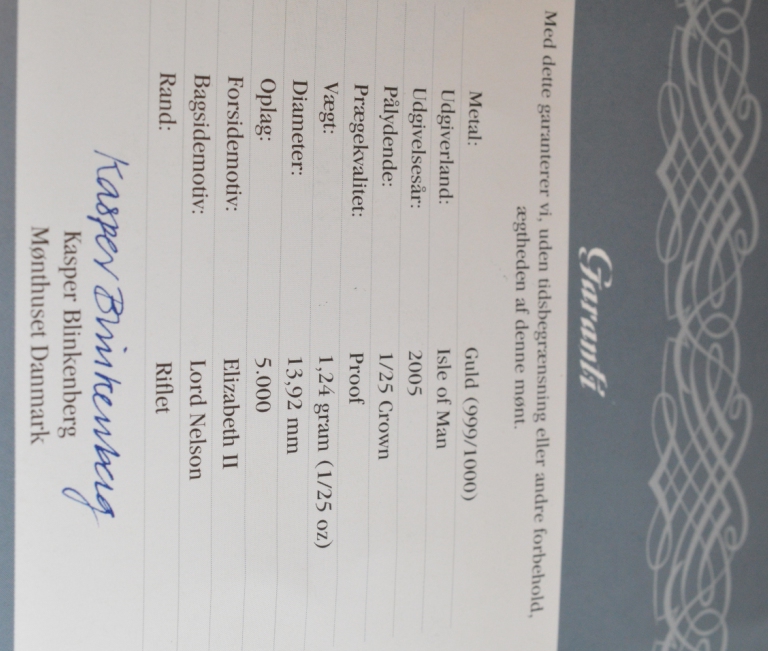 Garanti
Med dette garanterer vi, uden tidsbegrænsning eller andre forbehold,
ægtheden af denne mønt.
Metal: Guld (999/1000)
Udgiverland: Isle of Man
Udgivelsesår: 2005
Pålydende: 1/25 Crown
Prægekvalitet: Proof
Vægt: 1,24 gram (1/25 oz)
Diameter: 13,92 mm
Oplag: 5.000
Forsidemotiv: Elizabeth II
Bagsidemotiv: Lord Nelson
Rand: Riflet
Kasper Blinkenberg
Kasper Blinkenberg
Mønthuset Danmark